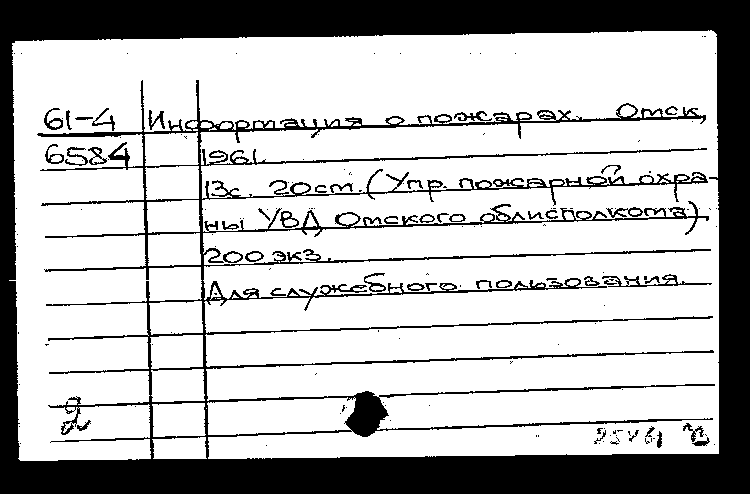 61-4 Информация о пожарах. Омск,
6584 1961.
13с. 20см. (Упр. пожарной охра-
ны УВД Омского облисполкома).
200 экз.
Для служебного пользования.
2
25 V 61